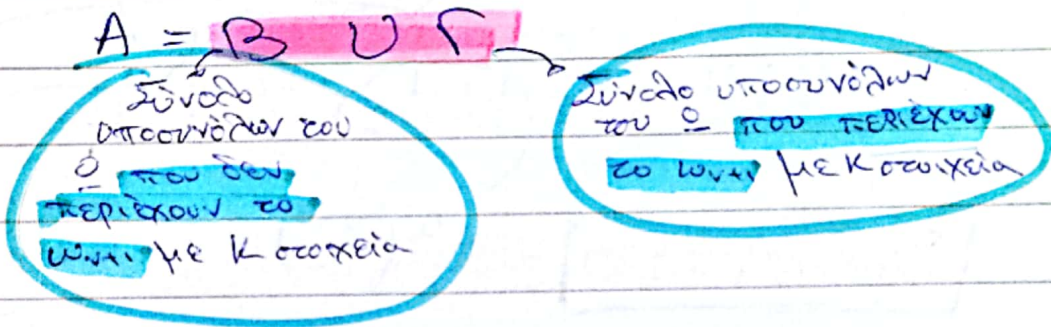 Α = Β ∪ Γ
Σύνολο
υποσυνόλων του
Ω που δεν
περιέχουν το
ων+1 με κ στοιχεία
Σύνολο υποσυνόλων
του Ω που περιέχουν
το ων+1 με κ στοιχεία